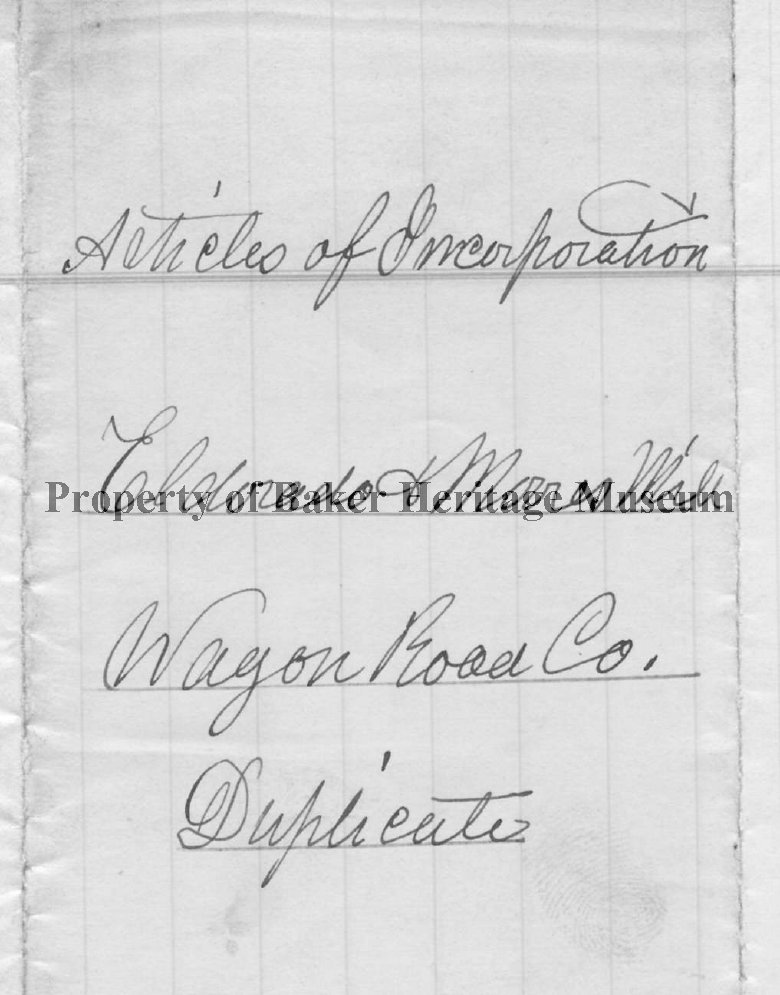 Articles of Incorporation
Eldorado &
Property of Baker Heritage Museum
Wagon Road Co.
Duplicate